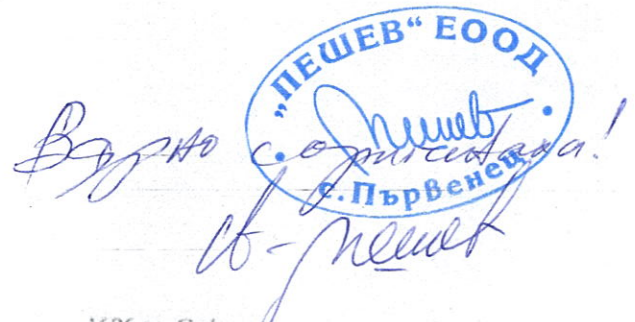 „ПЕШЕВ“ ЕООД
Пешев
с. Първенец
Вярно с оригинала!
Пешев